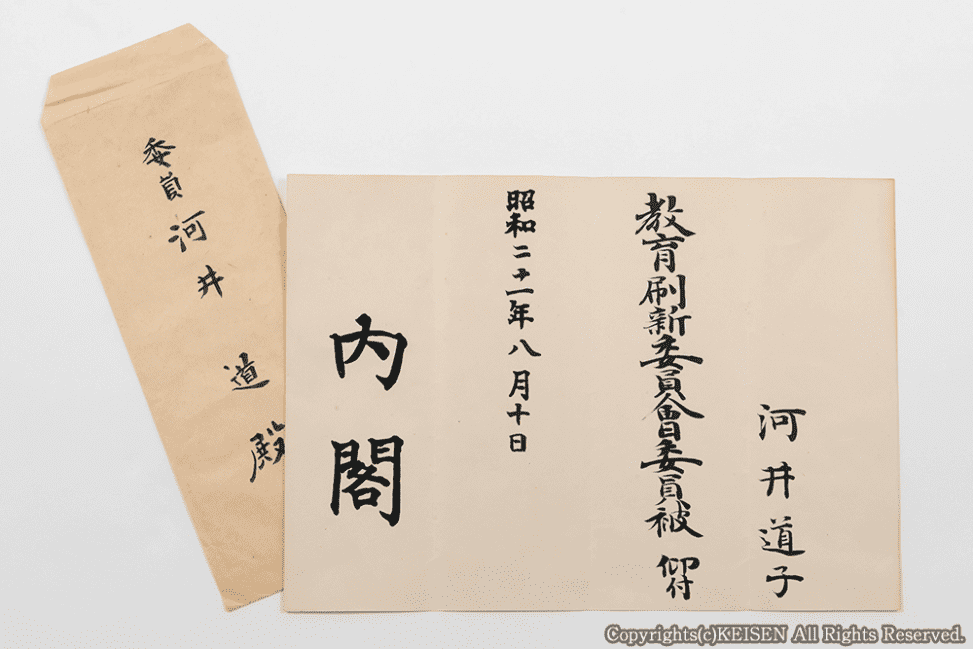 委員 河井 道 殿
河井道子
教育刷新委員會委員被 仰付
昭和二十一年八月十日
内閣
Copyrights(c)KEISEN All Rights Reserved.